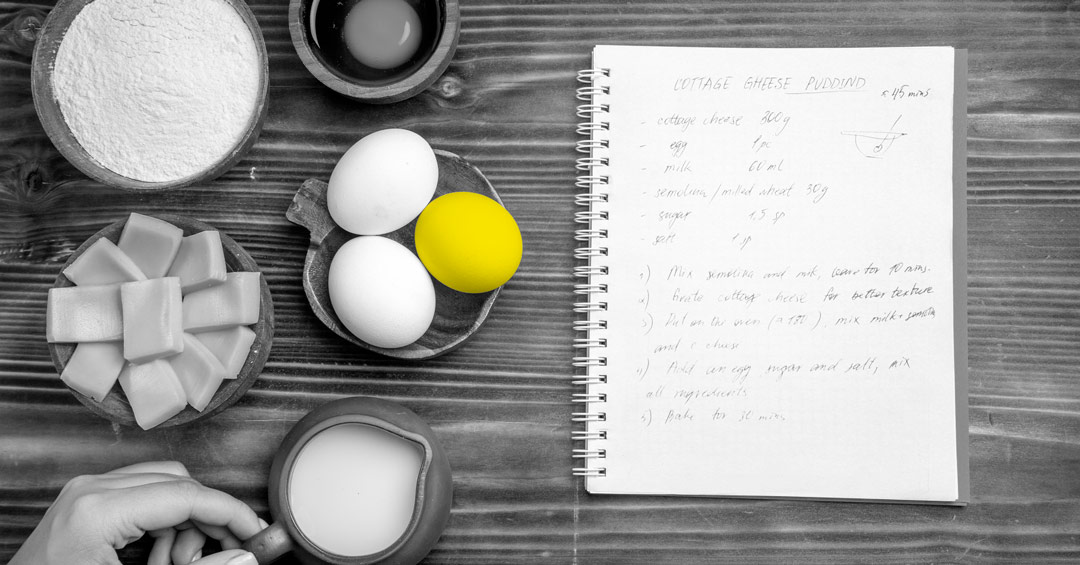 COTTAGE GHEESE PUDDIND
≈ 45 mins
- cottage cheese 300g
- egg 1 pc
- milk 60 mL
- semolina / milled wheat 30g
- sugar 1,5 sp
- salt 1 sp
1) Mix semolina and milk, leave for 10 mins.
2) Grate cottage cheese for better texture
3) Put on the oven (≈ 180), mix milk+semolina
and c cheese
4) Add an egg sugar and salt, mix
all ingredients
5) Bake for 30 mins